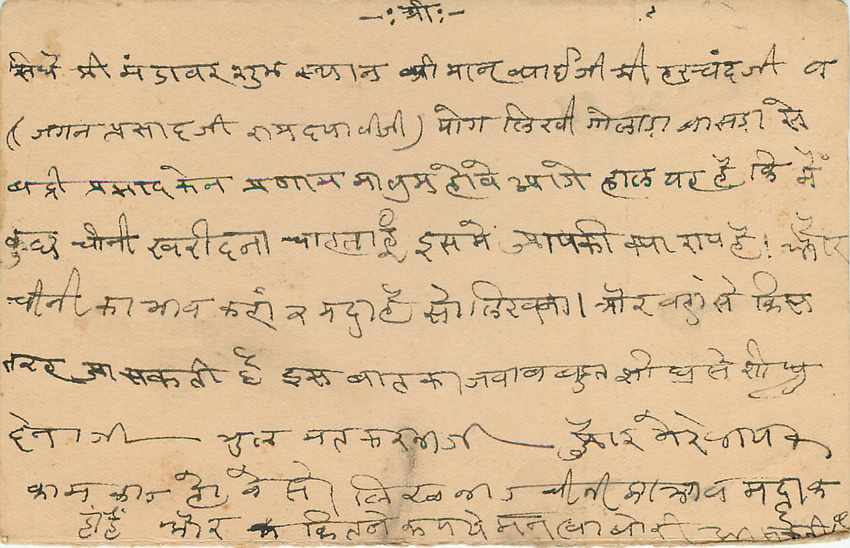 -:श्री:-
सिध श्री मंडावर शुभ स्थान श्री मान भाईजी श्री हरचंदजी व
(जगन प्रसादजी रामदयालीजी) योग लिखी गोलाड़ा बासड़ा से
बद्री प्रसाद केन प्रणाम मालुम होवे आगे हाल यह है कि मैं
कुछ चीनी खरीदना चाहता हूँ इसमें आपकी क्या राय है। और
चीनी का भाव कहां व मद्दा है सो लिखना। और वहां से किस
तरह आ सकती है इस बात का जवाब बहुत शीघ्र से शीघ्र
देना जी भुल मत करना जी और मेरे लायक
काम काज हो वे सो लिखना चीनी का भाव मद्दा क
हाँ है और कितने रूपये मन